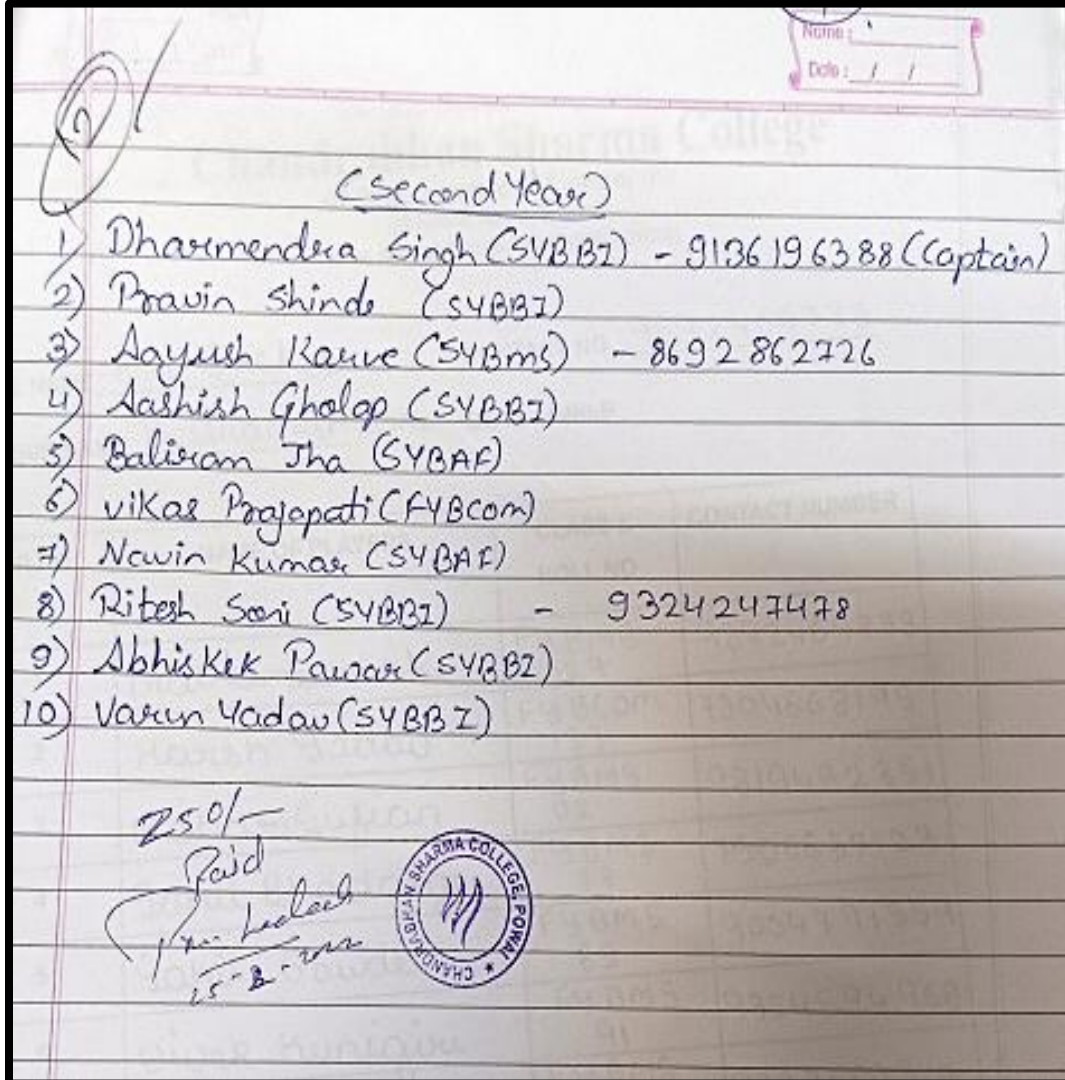 Name :
Date : / /
2
(Second Year)
1) Dharmendra Singh (SYBBI) - 9136196388 (Captain)
2) Pravin Shinde (SYBBI)
3) Aayush Karve (SYBms) - 8692862726
4) Aashish Gholap (SYBBI)
5) Baliram Jha (SYBAF)
6) vikas Prajapati (FYBcom)
7) Navin Kumar (SYBAF)
8) Ritesh Soni (SYBBI) - 9324247478
9) Abhiskek Pawar (SYBBI)
10) Varun Yadav (SYBBI)
250/-
Paid
25-8-2022
CHANDRABHAN SHARMA COLLEGE, POWAI